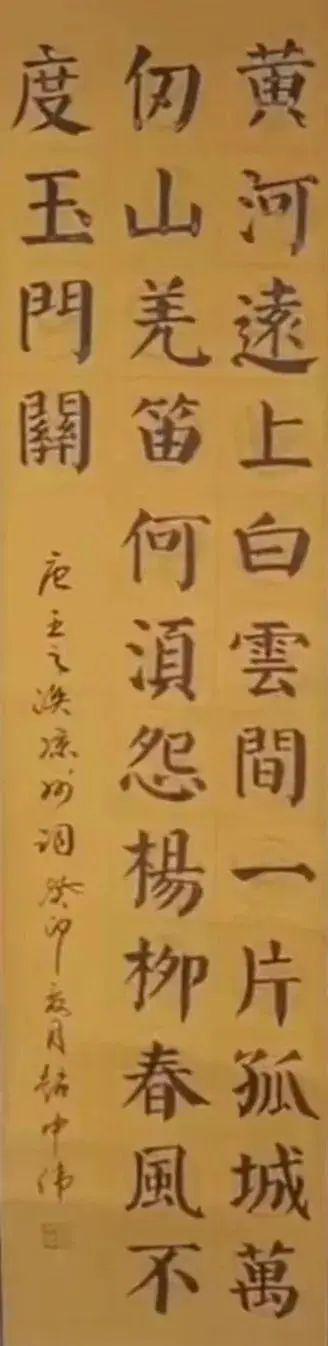 黄河遠上白雲間一片孤城萬
仞山羌笛何須怨楊柳春風不
度玉門關
唐王之渙涼州詞癸卯夏月赵中伟